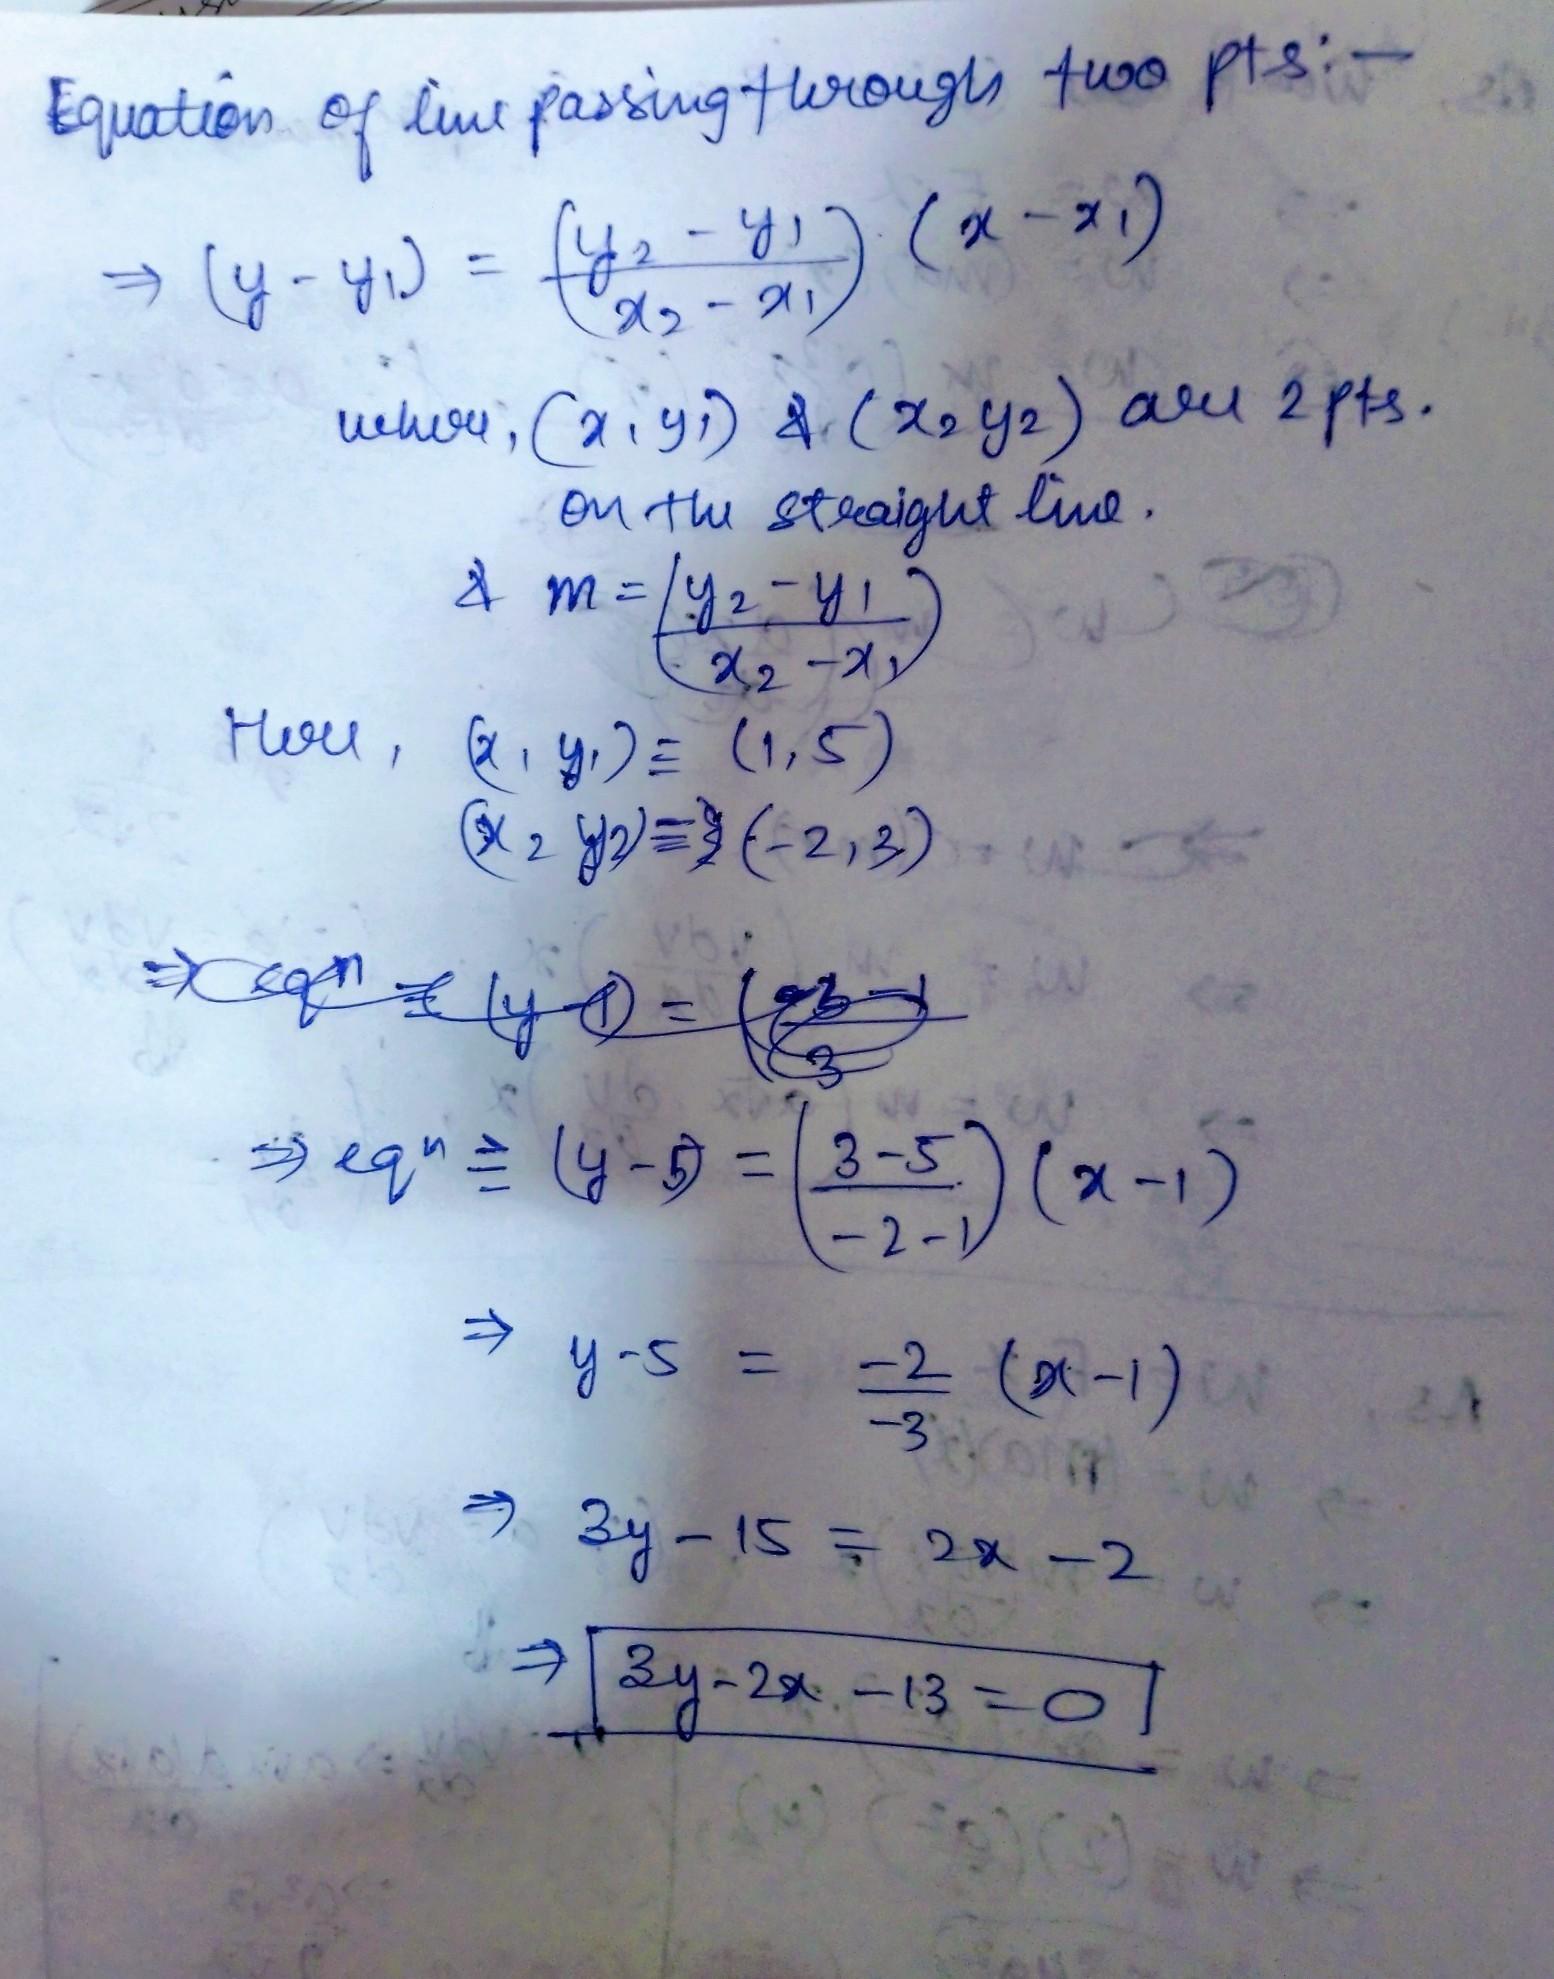 Equation of line passing through two pts:-
⇒ (y - y1) = ((y2 - y1)/(x2 - x1)) . (x - x1)
where, (x1 y1) & (x2 y2) are 2 pts.
on the straight line.
& m = ((y2 - y1)/(x2 - x1))
Here, (x1 y1) ≡ (1,5)
(x2 y2) ≡ (-2,3)
⇒ eqn ≡ (y - 5) = ((3-5)/(-2-1)) (x-1)
⇒ y-5 = -2/-3 (x-1)
⇒ 3y - 15 = 2x - 2
⇒ 3y - 2x - 13 = 0